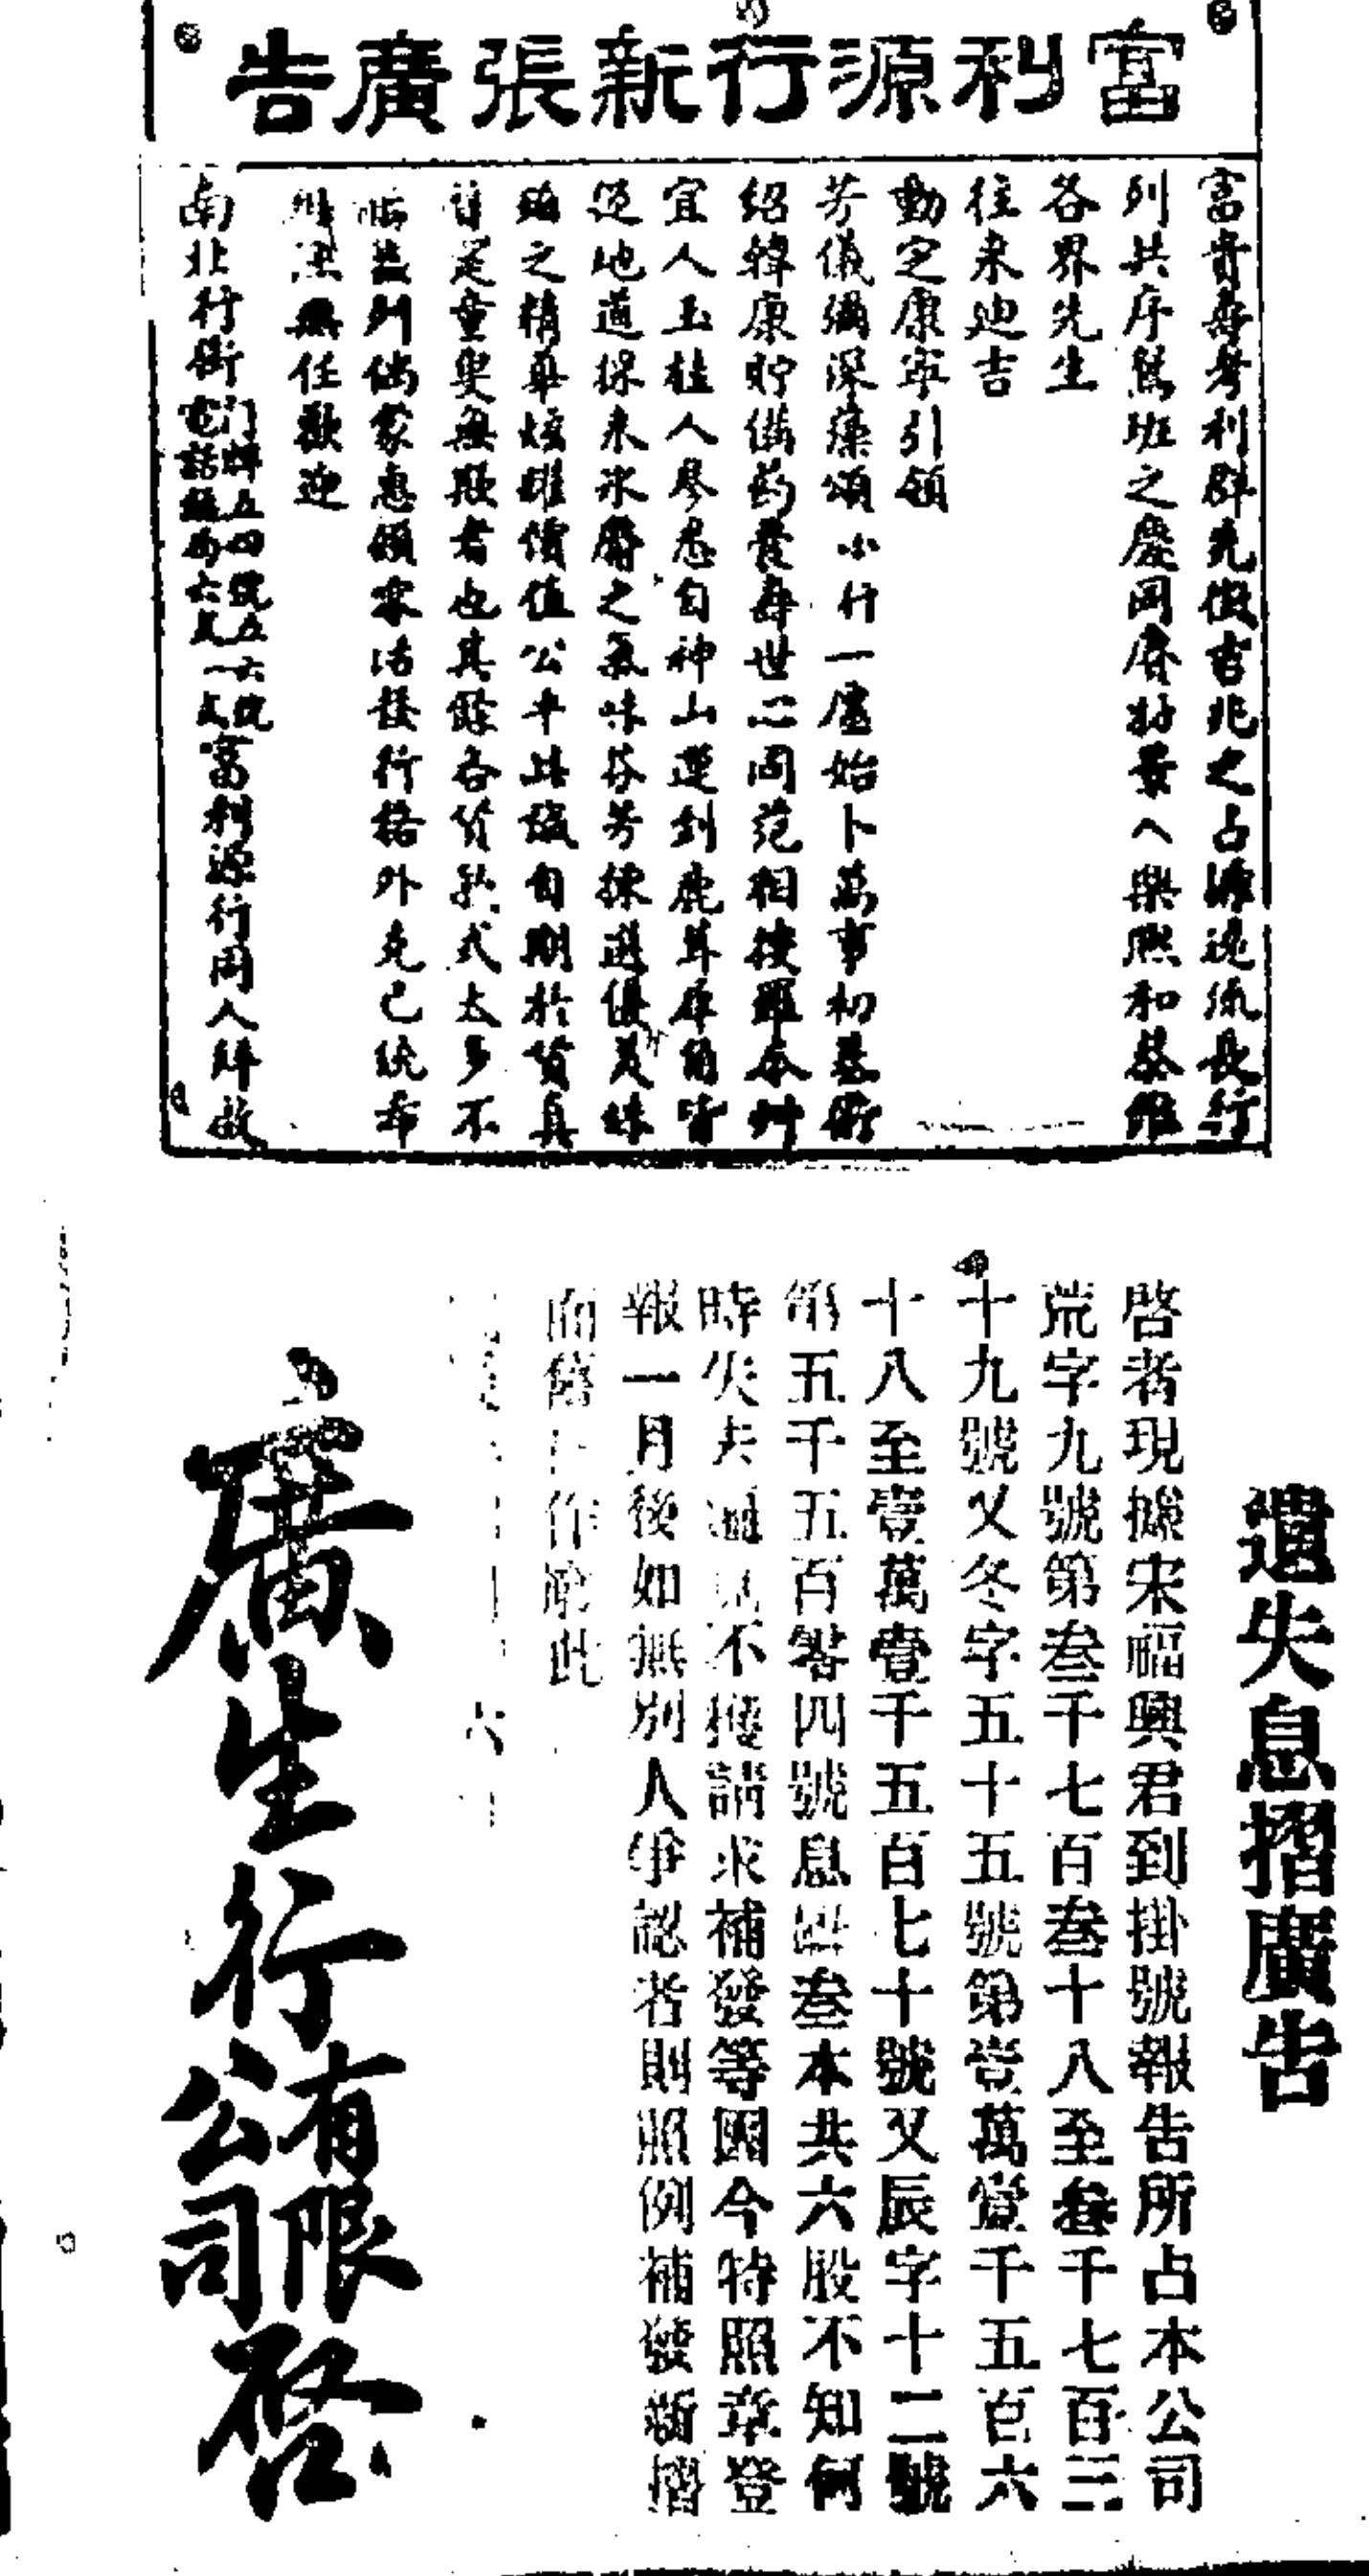 富利源行新張廣告
富貴壽考利群先徵吉兆之占源遠流長行
列共序鴛班之慶同膺勃業入樂熙和恭維
各界先生
往來迪吉
動定康寧引領
芳儀彌深藻頌小行一廛始卜萬事初基術
紹韓康貯備葯農壽世心同范相搜羅本艸
宜人玉桂人參悉自神山運到鹿茸犀角皆
從地道採來氷麝之氣味芬芳揀選優美珠
珀之精華炫耀價值公平此誠自期於貨真
童叟無欺者也其餘各貨欵式太多不
列倘蒙惠顧零沽發行格外克己統希
無任歡迎
南北行街
門牌五四號五六號
電話
富利源行同人拜啟
遺失息摺廣告
啓者現據宋福興君到掛號報告所占本公司
荒字九號第叁千七百叁十八至叁千七百三
十九號又冬字五十五號第壹萬壹千五百六
十八至壹萬壹千五百七十號又辰字十二號
第五千五百零四號息摺叁本共六股不知何
時失去遍尋不獲請求補發等因今特照章登
報一月後如無別人爭認者則照例補發新摺
而舊作廢此
廣生行有限公司啓